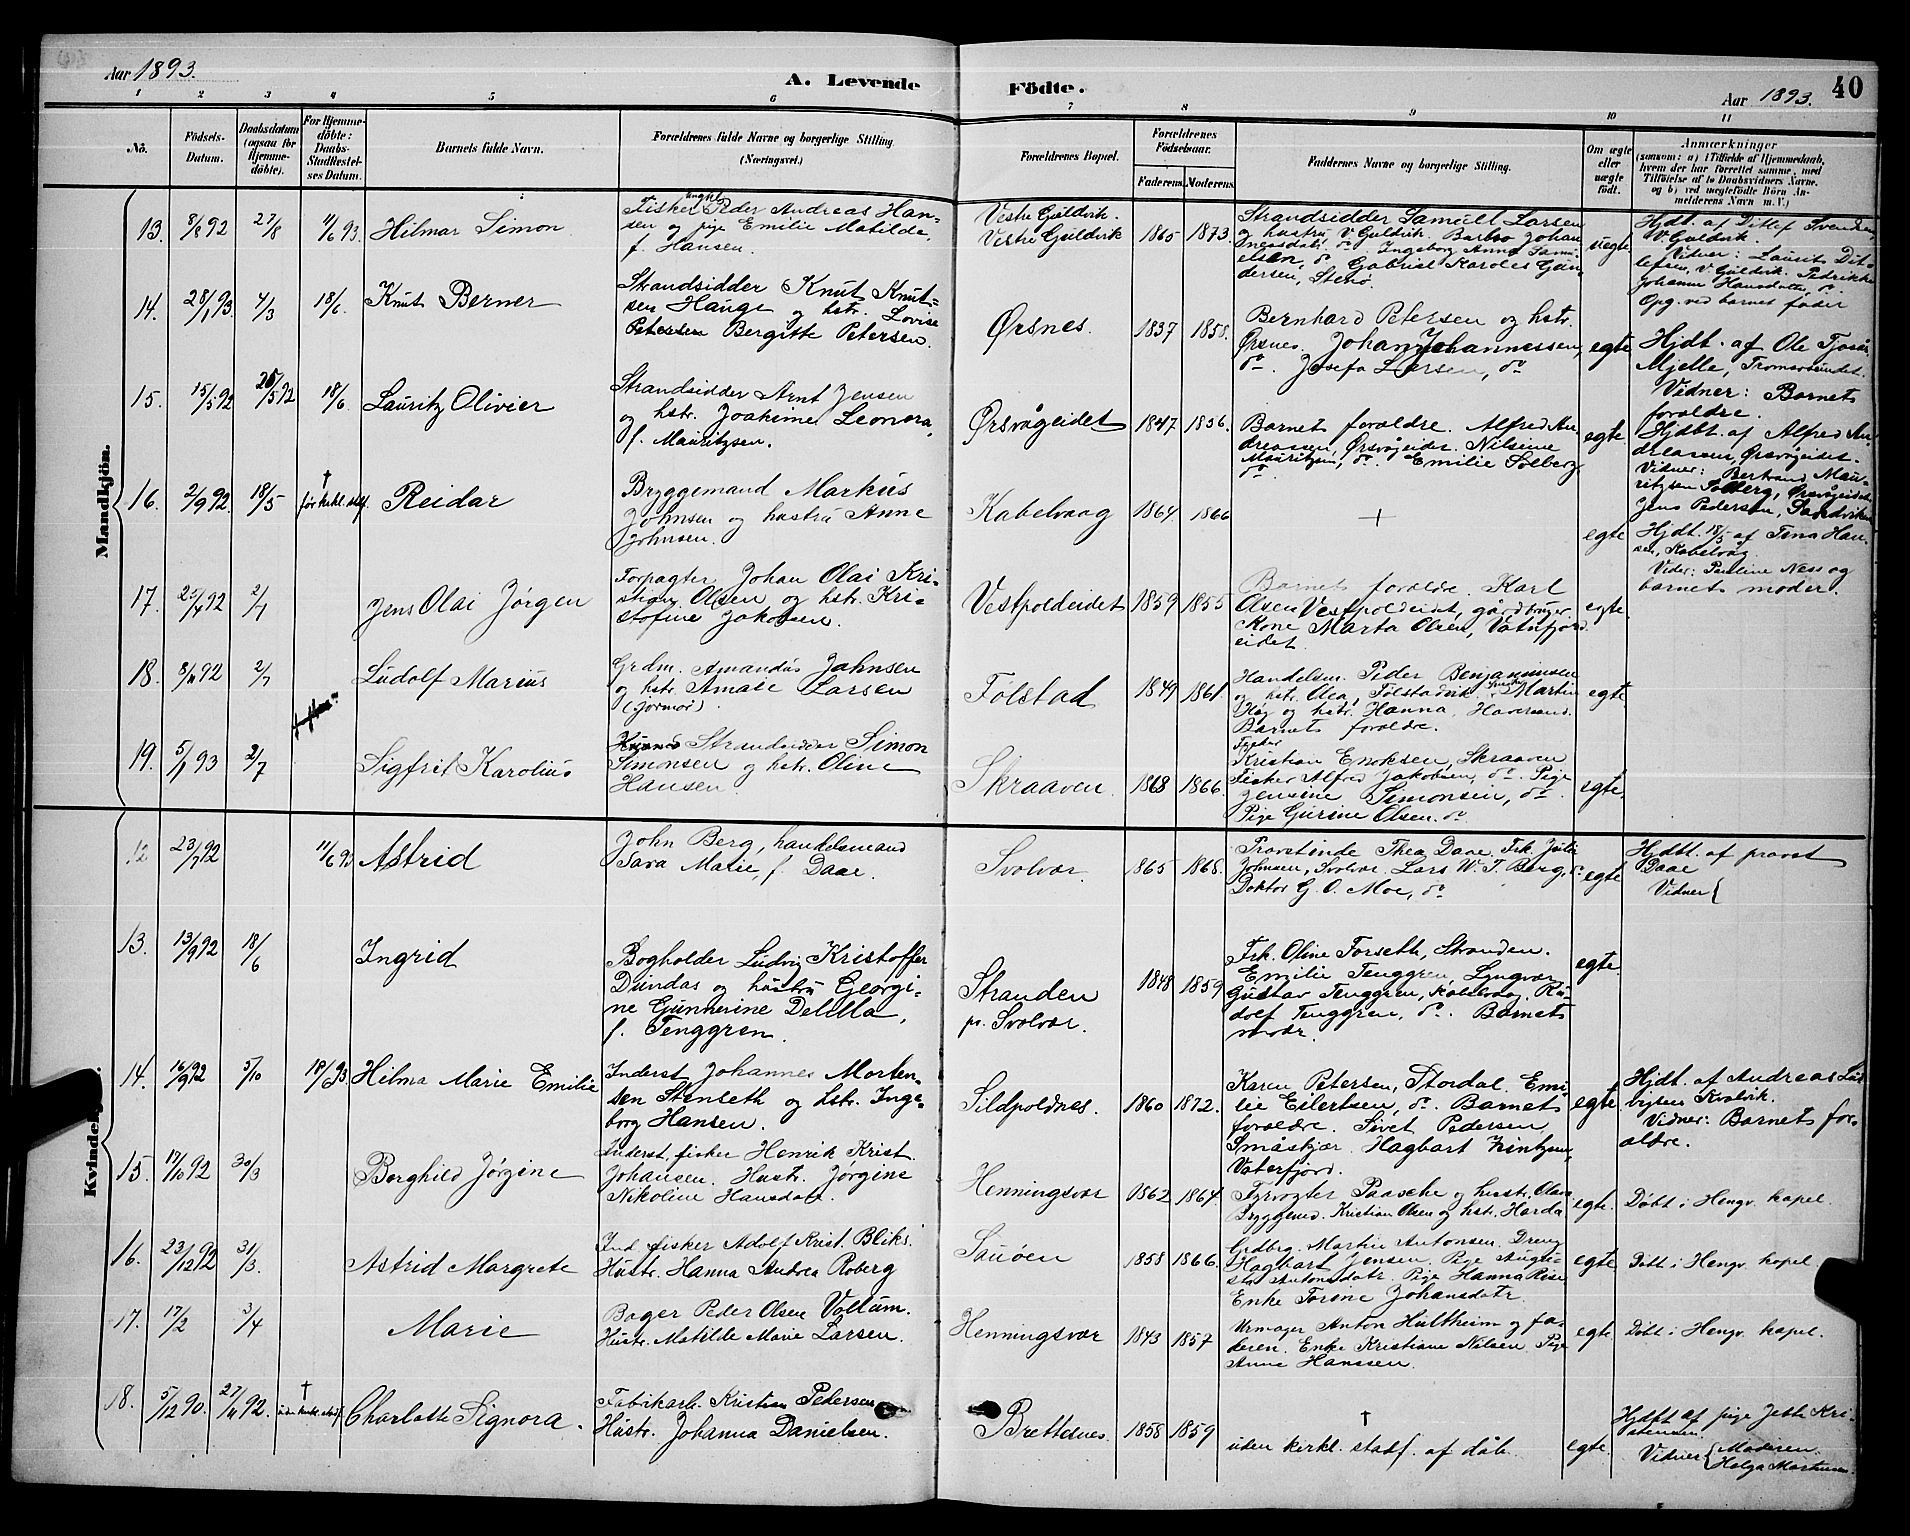 Aar 1893.
A. Levende Födte.
Aar 1893.
40
1 2 3 4 5 6 7 8 9 10 11
No.
Födsels-Datum.
Daabsdatum (ogsaa for Hjemmedöbte).
For Hjemmedöbte: Daabs-Stadfæstelses Datum.
Barnets fulde Navn.
Forældrenes fulde Navne og borgerlige Stilling. (Næringsvei.)
Forældrenes Bopæl.
Forældrenes Födselsaar.
Faderens. Moderens.
Faddernes Navne og borgerlige Stilling.
Om ægte eller uægte födt.
Anmærkninger
(saasom: a) i Tilfælde af Hjemmedaab,
hvem der har forrettet samme, med
Tilföielse af to Daabsvidners Navne,
og b) ved uegtefödte Börn Anmelderens Navn m. V.)
Mandkjön.
13. 8/8 92 27/8 11/6 93 Hilmar Simon
Fisker Ungkl Peder Andreas Han-
sen og pige Emilie Matilde,
f. Hansen.
Vestre Guldvik.
Vestre Guldvik 1865 1873.
Strandsidder Samuel Larsen
og hustru V. Guldvik. Barbro Johan
Ingeborg Anna Samu-
elsen, do Gabriel Karoles Gun-
dersen, Stenø.
uegte
Hjdt. af Ditlef Svendsen
V. Guldvik.
Vidner: Laurits Dit-
lefsen, V. Guldvik. Pedrikke
Johanne Hansdatter, do.
Opg. ved barnet fader
14. 28/1 93. 4/3 18/6. Knut Berner
Strandsidder Knut Knut-
sen Hauge og hstr. Lovise
Petersen Bergitte Petersen.
Ørsnes. 1837 1858.
Bernhard Petersen og hstr.
Ørsnes. Johan Johannessen,
do. Josefa Larsen, do
egte
Hjdt. af Ole Tjosås
Mjelle, Tromsøsundet.
Vidner: Barnets
foraldre.
15. 15/5 92 25/5 92 18/6. Lauritz Olivier
Strandsidder Arnt Jensen
og hstr. Joakime Leonora,
f. Mauritzsen.
Ørsvågeidet 1847 1856.
Barnet foraldre. Alfred An-
dreassen, Ørsvågeidet. Nilsine
Mauritzsen, do. Emilie Solberg
do.
egte
Hjdbt. af Alfred An-
dreassen, Ørsvågeidet.
Vidner: Bertrand Mau-
ritzsen Solberg, Ørsvågeidet
Jens Pedersen, Sandviken
16. 2/9 92. 18/5 † før kirkl. stdf. Reidar
Bryggemand Markus
Johnsen og hustru Anne
Johnsen.
Kabelvaag 1864 1866
+
egte
Hjdt. 18/5 af Tena Han-
sen, Kabelvåg.
Vidner: Pauline Ness og
barnets moder.
17. 25/4 92 2/7 Jens Olai Jørgen
Forpagter Johan Olai Kri-
stian Olsen og hstr. Kri-
stofine Jakobsen.
Vestpoldeidet 1859 1855
Barnets foraldre. Karl
Olsen Vestpoldeidet, gårdbruger
Kone Marta Olsen, Vaterfjord
eidet.
egte
18. 8/11 92 2/7 Ludolf Marius
Grdm. Amandus Jahnsen
og hstr. Amalie Larsen
Folstad 1849 1861.
Handelsm. Peder Benjaminsen
og hstr. Olea, Folstadvik. Martin
Høg og hstr. Hanna, Haversand.
Barnets foraldre.
egte
19. 5/1 93 2/7 Sigfrit Karolius
Strandsidder Simon
Simonsen og hstr. Oline
Hansen.
Skraaven 1868 1866.
Fisker
Kristian Enoksen, Skraaven
Fisker Alfred Jakobsen, do. Pige
Jensine Simonsen, do.
Pige Gurine Olsen. do
egte.
Kvindekjön.
12 23/7 92 11/6 93 Astrid
John Berg, handelsmand
Sara Marie, f. Daae.
Svolvær. 1865 1868.
Provstinde Thea Daae. Frk. Julie
Johnsen, Svolvær. Lars W. T. Berg, do
Doktor G. O. Moe, do
egte
Hjdbt. af provst
Daae
Vidner {
13. 13/9 92 18/6 Ingrid
Bogholder Ludvig Kristoffer
Dundas og hustru Georgi-
ne Gunnerine Delilla,
f. Tenggren.
Stranden
pr. Svolvær. 1848 1859
Frk. Oline Forseth, Stranden.
Emilie Tenggren, Lyngvær
Gustav Tenggren, Kabelvaag, Ru-
dolf Tenggren, do. Barnets
moder.
egte
14. 16/9 92 5/10 18/6 93. Hilma Marie Emilie
Inderst Johannes Morten-
sen Stenseth og hstr. Inge-
borg Hansen.
Sildpoldnes. 1860 1872.
Karen Petersen, Stordal. Emi-
lie Eilertsen, do. Barnets
foraldre. Sivet Pedersen
Småskjær. Hagbart Zintzen,
Vaterfjord.
egte
Hjdt. af Andreas Lud-
vigsen Kvalvik.
Vidner: Barnets for-
aldre.
15. 17/10 92 30/3 Borghild Jørgine
Inderst, fisker Henrik Krist.
Johansen. Hustr. Jørgine
Nikoline Hansdatr.
Henningsvær 1862 1864.
Fyrvogter Paasche og hustr. Olava
Bryggemd. Kristian Olsen og hstr. Harda
egte.
Døbt i Hengv. kapel.
16. 23/12 92 31/3. Astrid Margrete
Ind. fisker Adolf Krist. Bliks.
Hustr. Hanna Andrea Roberg
Sauøen 1858 1866.
Grdbrg. Martin Antonsen. Dreng
Hagbart Jensen. Pige Augu-
sta Antonsdatr. Pige Hanna Røse
Enke Torine Johansdatr.
egte
Døbt i Hengv. kapel
17. 17/2 3/4 Marie
Bager Peder Olsen Vollum.
Hustr. Matilde Marie Larsen.
Henningsvær 1843 1857
Urmager Anton Hultheim og fa-
deren. Enke Kristiane Nilsen. Pige
Anne Hanssen.
egte
Døbt i Hengv. kapel.
18. 5/12 90. 27/11 92. † uden kirkl. stadf. Charlotte Signora.
Fabrikarb. Kristian Pedersen
Hustr. Johanna Danielsen.
Brettesnes 1858 1859
†
uden kirkl. stadf. af dåb.
egte.
Hjdbt af pige Jette Kri-
stensen.
Vidner { Moderen.
Helga Martinsen.